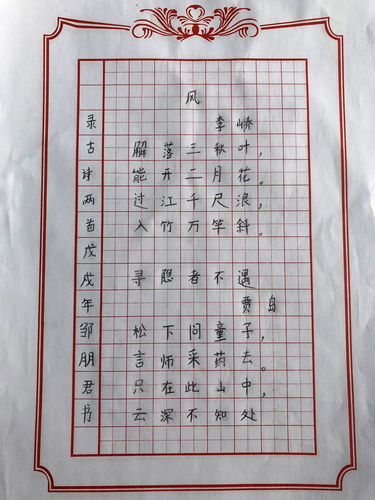 风
李峤
解落三秋叶，
能开二月花。
过江千尺浪，
入竹万竿斜。
寻隐者不遇
贾岛
松下问童子，
言师采药去。
只在此山中，
云深不知处。
录古诗两首戊戌年邹朋君书